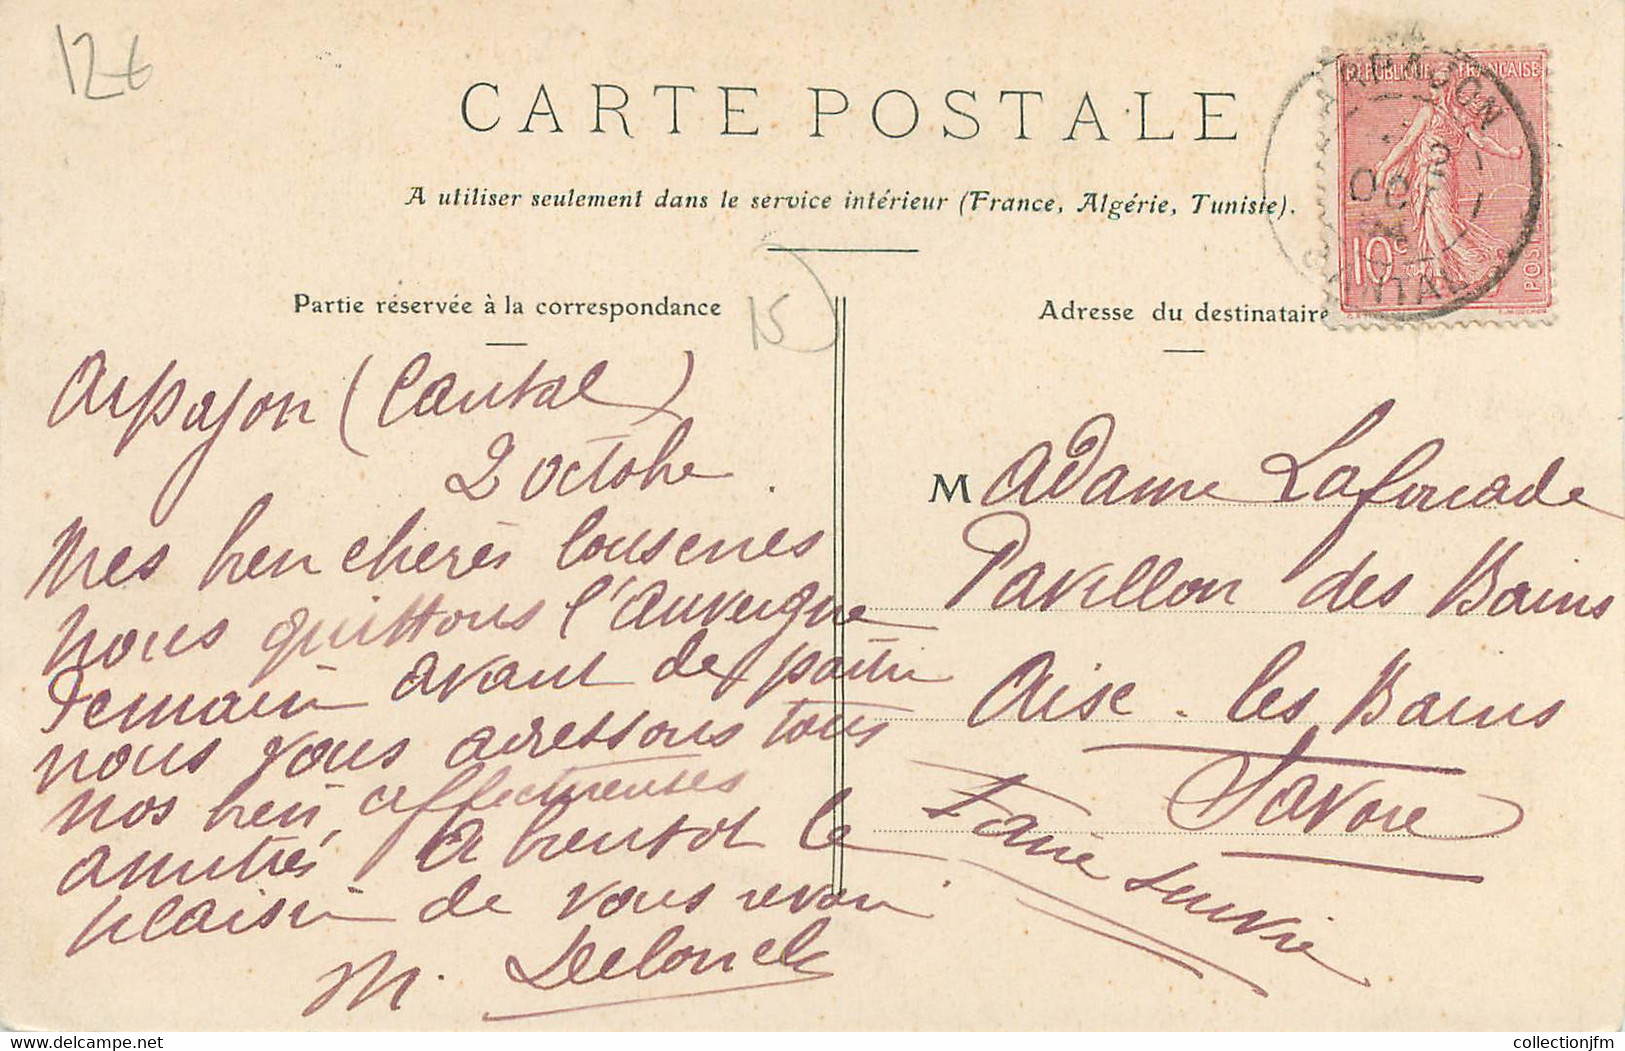 12€
CARTE POSTALE
A utiliser seulement dans le service intérieur (France, Algérie, Tunisie).
REPUBLIQUE FRANÇAISE
10c
POST
ARPAJON
2
OC
CANTAL
Partie réservée à la correspondance
15
Adresse du destinataire
Arpajon (Cantal)
2 octobre.
Mes bien cheres cousines
nous quittons l'Auvergne
demain avant de partir
nous vous adressons tous
nos bien affectueuses
amitiés, a bientot le
plaisir de vous revoir.
M. Delouch
Madame Lafoucade
Pavillon des Bains
Aise-les Bains
Savoie
Faire suivre
Delcampe.net
collectionjfm